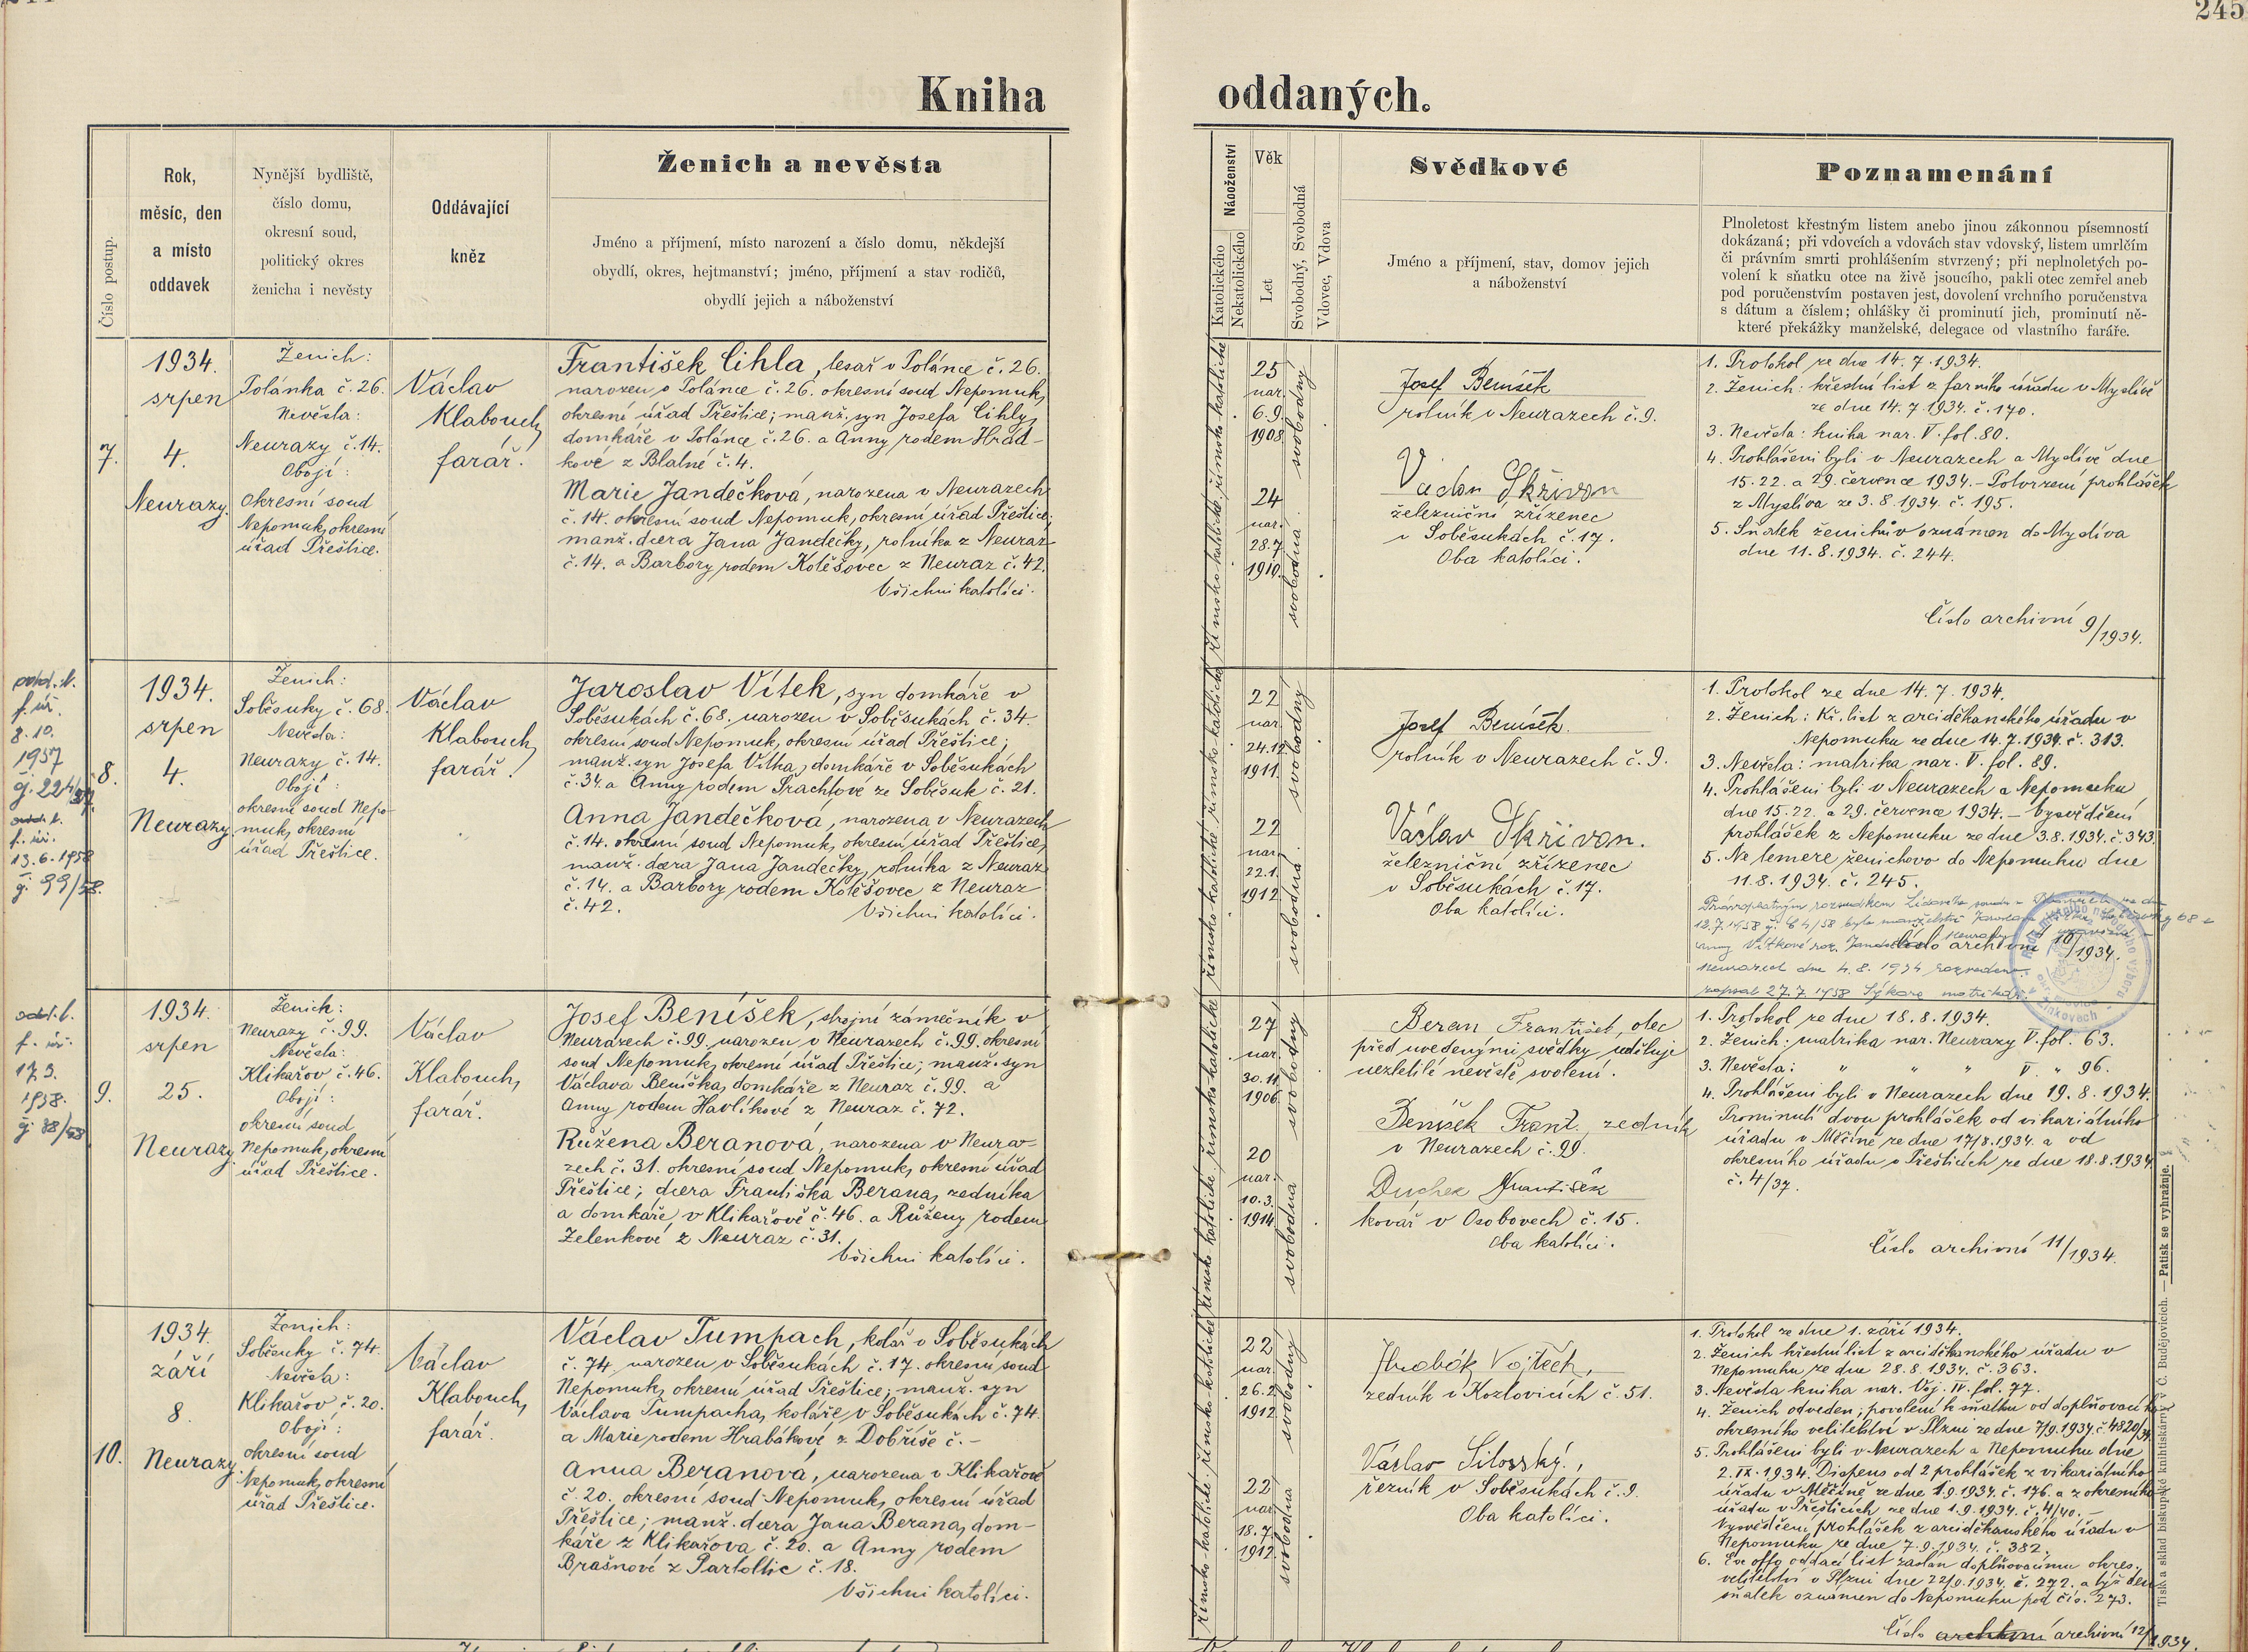 245
Kniha oddaných.
Číslo postup.
Rok,
měsíc, den
a místo
oddavek
Nynější bydliště,
číslo domu,
okresní soud,
politický okres
ženicha i nevěsty
Oddávající
kněz
Ženich a nevěsta
Jméno a příjmení, místo narození a číslo domu, někdejší
obydlí, okres, hejtmanství; jméno, příjmení a stav rodičů,
obydlí jejich a náboženství
Náboženství
Katolického
Nekatolického
Věk
Let
Svobodný, Svobodná
Vdovec, Vdova
Svědkové
Jméno a příjmení, stav, domov jejich
a náboženství
Poznamenání
Plnoletost křestným listem anebo jinou zákonnou písemností
dokázaná; při vdovcích a vdovách stav vdovský, listem umrlčím
či právním smrti prohlášením stvrzený; při neplnoletých po-
volení k sňatku otce na živě jsoucího, pakli otec zemřel aneb
pod poručenstvím postaven jest, dovolení vrchního poručenstva
s dátum a číslem; ohlášky či prominutí jich, prominutí ně-
které překážky manželské, delegace od vlastního faráře.
7.
1934.
srpen
4.
Neurazy.
Ženich:
Polánka č. 26.
Nevěsta:
Neurazy č. 14.
Obojí:
Okresní soud
Nepomuk, okresní
úřad Přeštice.
Václav
Klabouch,
farář.
František Cihla, tesař v Polánce č. 26.
narozen v Polánce č. 26. okresní soud Nepomuk,
okresní úřad Přeštice; manž. syn Josefa Cihly,
domkáře v Polánce č. 26. a Anny rodem Hrád-
kové z Blatné č. 4.
Marie Jandečková, narozena v Neurazech
č. 14. okresní soud Nepomuk, okresní úřad Přeštice;
manž. dcera Jana Jandečky, rolníka z Neuraz
č. 14. a Barbory rodem Kolěšovec z Neuraz č. 42.
Všichni katolíci.
římsko-katolické
římsko-katolické
25
nar.
6.9.
1908
svobodný
24
nar.
28.7.
1910.
svobodná
Josef Beníšek
rolník v Neurazech č. 9.
Václav Skřivan
železniční zřízenec
v Soběsukách č. 17.
Oba katolíci.
1. Protokol ze dne 14. 7. 1934.
2. Ženich: křestní list z farního úřadu v Myslívě
ze dne 14. 7. 1934. č. 170.
3. Nevěsta: kniha nar. V. fol. 80.
4. Prohlášeni byli v Neurazech a Myslívě dne
15. 22. a 29. července 1934. - Potvrzení prohlášek
z Myslíva ze 3. 8. 1934. č. 195.
5. Sňatek ženichův oznámen do Myslíva
dne 11. 8. 1934. č. 244.
Číslo archivní 9/1934.
f. úř.
8. 10.
1957
f. úř.
13. 6. 1958
č. 99/58.
8.
1934.
srpen
4.
Neurazy
Ženich:
Soběsuky č. 68.
Nevěsta:
Neurazy č. 14.
Obojí:
okresní soud Nepo-
muk, okresní
úřad Přeštice.
Václav
Klabouch,
farář.
Jaroslav Vítek, syn domkáře v
Soběsukách č. 68. narozen v Soběsukách č. 34.
okresní soud Nepomuk, okresní úřad Přeštice;
manž. syn Josefa Vítka, domkáře v Soběsukách
č. 34. a Anny rodem Šrachtové ze Soběsuk č. 21.
Anna Jandečková, narozena v Neurazech
č. 14. okresní soud Nepomuk, okresní úřad Přeštice,
manž. dcera Jana Jandečky, rolníka z Neuraz
č. 14. a Barbory rodem Kolěšovec z Neuraz
č. 42.
Všichni katolíci.
římsko-katolické
římsko-katolické
22
nar.
24.12.
1911.
svobodný
22
nar.
22.1.
1912.
svobodná
Josef Beníšek.
rolník v Neurazech č. 9.
Václav Skřivan.
železniční zřízenec
v Soběsukách č. 17.
Oba katolíci.
1. Protokol ze dne 14. 7. 1934.
2. Ženich: Kř. list z arciděkanského úřadu v
Nepomuku ze dne 14. 7. 1934. č. 313.
3. Nevěsta: matrika nar. V. fol. 89.
4. Prohlášeni byli v Neurazech a Nepomuku
dne 15. 22. a 29. července 1934. - Vysvědčení
prohlášek z Nepomuku ze dne 3. 8. 1934. č. 343.
5. Ne temere ženichovo do Nepomuku dne
11. 8. 1934. č. 245.
Číslo archivní 10/1934.
dne 4. 8. 1934 rozvedeno.
zapsal 27. 7. 1958 Sýkora matrikář.
f. úř.
17. 3.
1938.
č. 38/38
9.
1934.
srpen
25.
Neurazy
Ženich:
Neurazy č. 99.
Nevěsta:
Klikařov č. 46.
Obojí:
okresní soud
Nepomuk, okresní
úřad Přeštice.
Václav
Klabouch,
farář.
Josef Beníšek, strojní zámečník v
Neurazech č. 99. narozen v Neurazech č. 99. okresní
soud Nepomuk, okresní úřad Přeštice; manž. syn
Václava Beníška, domkáře z Neuraz č. 99. a
Anny rodem Havlíkové z Neuraz č. 72.
Růžena Beranová, narozena v Neura-
zech č. 31. okresní soud Nepomuk, okresní úřad
Přeštice; dcera Františka Berana, zedníka
a domkáře v Klikařově č. 46. a Růženy rodem
Zelenkové z Neuraz č. 31.
Všichni katolíci.
římsko-katolické
římsko-katolické
27
nar.
30.11.
1906.
svobodný
20
nar.
10.3.
1914.
svobodna
Beran František, otec
před uvedenými svědky uděluje
nezletilé nevěstě svolení.
Beníšek Frant. zedník
v Neurazech č. 99.
Duchek František
kovář v Osobovech č. 15.
Oba katolíci.
1. Protokol ze dne 18. 8. 1934.
2. Ženich: matrika nar. Neurazy V. fol. 63.
3. Nevěsta: " " " V. " 96.
4. Prohlášeni byli v Neurazech dne 19. 8. 1934.
Prominutí dvou prohlášek od vikariátního
úřadu v Měčíně ze dne 17/8. 1934. a od
okresního úřadu v Přešticích ze dne 18. 8. 1934
č. 4/37.
Číslo archivní 11/1934.
10.
1934.
září
8.
Neurazy
Ženich:
Soběsuky č. 74.
Nevěsta:
Klikařov č. 20.
Obojí:
okresní soud
Nepomuk, okresní
úřad Přeštice.
Václav
Klabouch,
farář.
Václav Tumpach, kolář v Soběsukách
č. 74, narozen v Soběsukách č. 17. okresní soud
Nepomuk, okresní úřad Přeštice; manž. syn
Václava Tumpacha, koláře v Soběsukách č. 74.
a Marie rodem Hrabákové z Dobříše č. -
Anna Beranová, narozena v Klikařově
č. 20. okresní soud Nepomuk, okresní úřad
Přeštice; manž. dcera Jana Berana, dom-
káře z Klikařova č. 20. a Anny rodem
Brašnové z Partoltic č. 18.
Všichni katolíci.
římsko-katolické
římsko-katolické
22
nar.
26.2.
1912.
svobodný
22
nar.
18.7.
1912.
svobodná
Hrabák Vojtěch,
zedník v Kozlovicích č. 51.
Václav Silovský,
řezník v Soběsukách č. 9.
Oba katolíci.
1. Protokol ze dne 1. září 1934.
2. Ženich křestní list z arciděkanského úřadu v
Nepomuku ze dne 28. 8. 1934. č. 363.
3. Nevěsta kniha nar. Voj. IV. fol. 77.
4. Ženich odveden; povolení k sňatku od doplňovacího
okresního velitelství v Plzni ze dne 7/9. 1934. č. 4820/34.
5. Prohlášeni byli v Neurazech a Nepomuku dne
2. IX. 1934. Dispens od 2 prohlášek z vikariátního
úřadu v Měčíně ze dne 1. 9. 1934. č. 176. a z okresního
úřadu v Přešticích ze dne 1. 9. 1934. č. 4/40. -
Vysvědčení prohlášek z arciděkanského úřadu v
Nepomuku ze dne 7. 9. 1934. č. 382.
6. Ex offo oddací list zaslán doplňovacímu okres.
velitelství v Plzni dne 22/9. 1934. č. 272. a týž den
sňatek oznámen do Nepomuku pod čís. 273.
Číslo archivní 12/1934.
Tisk a sklad biskupské knihtiskárny v Č. Budějovicích. — Patisk se vyhražuje.